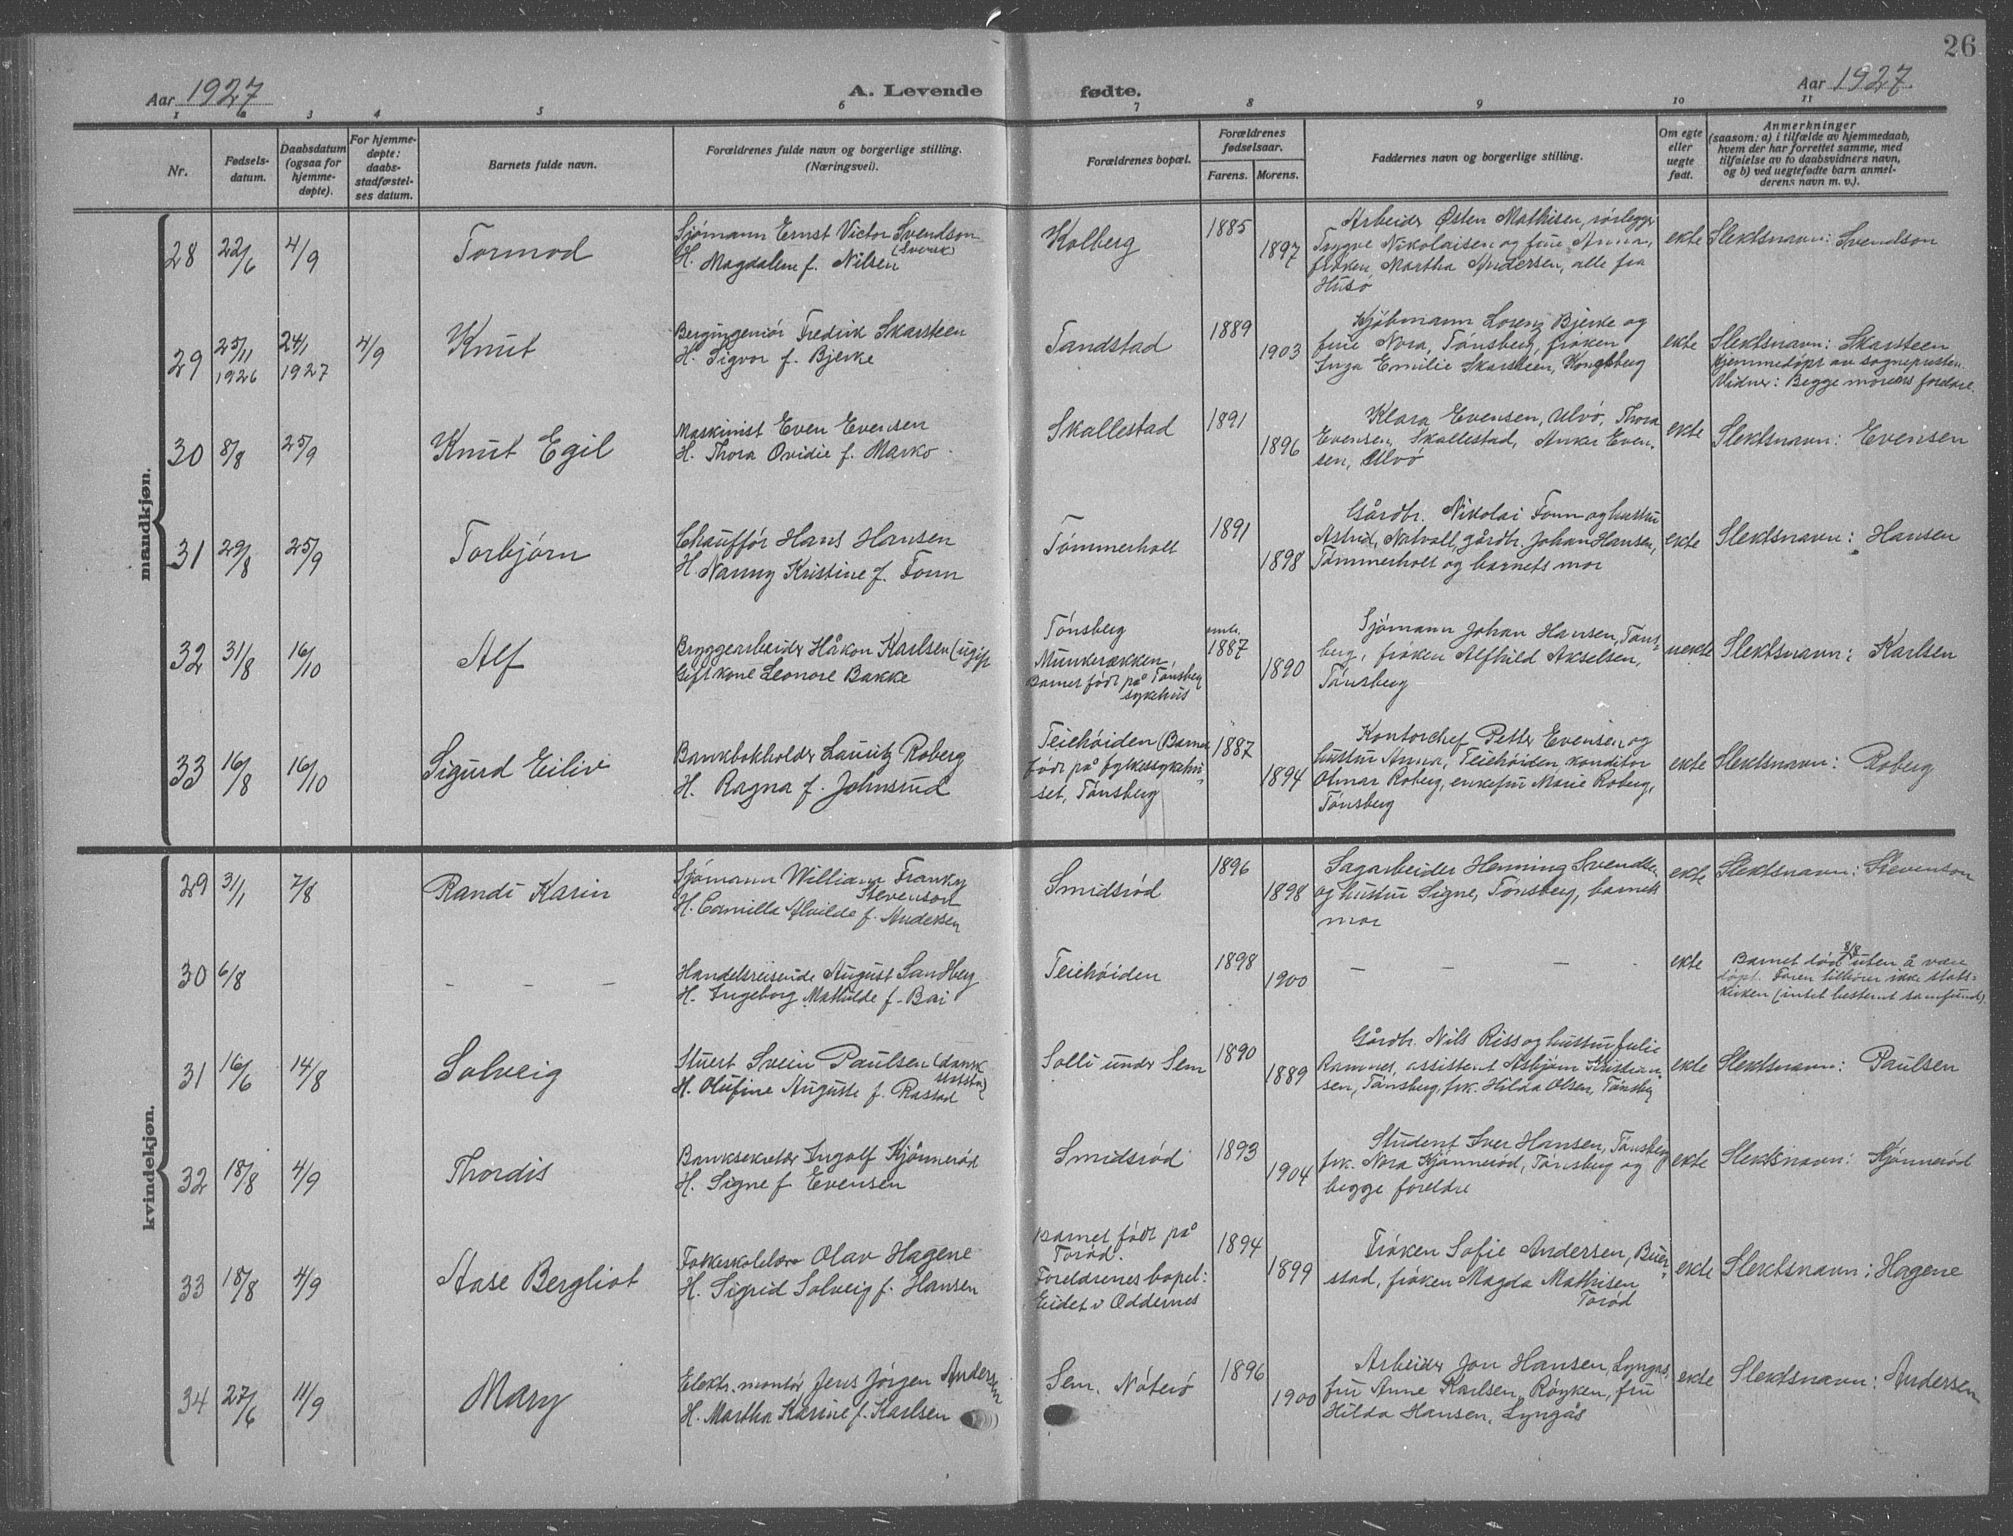 26
Aar 1927
A. Levende
fødte.
Aar 1927
1 2 3 4 5 6 7 8 9 10 11
Nr.
Fødsels-
datum.
Daabsdatum
(ogsaa for
hjemme-
døpte).
For hjemme-
døpte:
daabs-
stadfæstel-
ses datum.
Barnets fulde navn.
Forældrenes fulde navn og borgerlige stilling.
(Næringsvei).
Forældrenes bopæl.
Forældrenes
fødselsaar.
Farens. Morens.
Faddernes navn og borgerlige stilling.
Om egte
eller
uegte
født.
Anmerkninger
(saasom: a) i tilfælde av hjemmedaab,
hvem der har forrettet samme, med
tilføielse av to daabsvidners navn,
og b) ved uegtefødte barn anmel-
derens navn m. v.).
mandkjøn.
28
22/6
4/9
Tormod
Sjømann Ernst Victor Svendson
(Svensk)
H. Magdalene f. Nilsen
Kolberg
1885
1897
Arbeider Østen Mathisen, rørlegger
Trygve Nikolaisen og frue Anna,
frøken Martha Andersen, alle fra
Husø
ekte
Slektsnavn: Svendson
29
25/11
1926
24/1
1927
4/9
Knut
Bergingeniør Fredrik Skarsteen
H. Sigvor f. Bjerke
Tandstad
1889
1903
Kjøbmann Lorenz Bjerke og
frue Nora, Tønsberg, frøken
Inga Emilie Skarsteen, Kongsberg
ekte
Slektsnavn: Skarsteen
Hjemmedøpt av sognepresten.
Vidner: Begge morens foreldre.
30
8/8
25/9
Knut Egil
Maskinist Even Evensen
H. Thora Ovidie f. Marko
Skallestad
1891
1896
Klara Evensen, Ulvø, Thora
Evensen, Skallestad, Anker Even-
sen, Ulvø
ekte
Slektsnavn: Evensen
31
29/8
25/9
Torbjørn
Chauffør Hans Hansen
H. Nanny Kristine f. Fonn
Tømmerholt
1891
1898
Gårdbr. Nikolai Fonn og hustru
Astrid, Natvall, gårdbr. Johan Hansen,
Tømmerholt og barnets mor
ekte
Slektsnavn: Hansen
32
31/8
16/10
Alf
Bryggearbeider Håkon Karlsen (ugift
Gift kone Leonore Bakke
Tønsberg
Munkerækken,
Barnet født på Tønsberg
sykehus
omtr.
1887
1890
Sjømann Johan Hansen, Tøns-
berg, frøken Alfhild Akselsen,
Tønsberg
uekte
Slektsnavn: Karlsen
33
16/8
16/10
Sigurd Eiliv
Bankbokholder Lauritz Roberg
H. Ragna f. Johnsrud
Teiehøiden (Barnet
født på fylkessykehu-
set, Tønsberg
1887
1894
Kontorchef Petter Evensen og
hustru Anna, Teiehøiden konditor
Otmar Roberg, enkefru Marie Roberg,
Tønsberg
ekte
Slektsnavn: Roberg
kvindekjøn.
29
31/1
7/8
Randi Karin
Sjømann William Franky
Stevenson
H. Camilla Alvilde f. Andersen
Smidsrød
1896
1898
Sagarbeider Henning Svendsen
og hustru Signe, Tønsberg, barnets
mor
ekte
Slektsnavn: Stevenson
30
6/8
– – –
Handelsreisende August Sandberg
H. Ingeborg Mathilde f. Bai
Teiehøiden
1898
1900
– – –
ekte
Barnet død 8/8 uten å være
døpt. Faren tilhører ikke stats-
kirken (intet bestemt samfund).
31
16/6
14/8
Solveig
Stuert Svein Paulsen (dansk
statsb.)
H. Olufine Auguste f. Rastad
Solli under Sem
1890
1889
Gårdbr. Nils Riss og hustru Julie
Ramnes, assistent Asbjørn Kristian-
sen, Tønsberg, frk. Hilda Olsen, Tønsberg
ekte
Slektsnavn: Paulsen
32
18/8
4/9
Thordis
Banksekretær Ingolf Kjønnerød
H. Signe f. Evensen
Smidsrød
1893
1904
Student Iver Hansen, Tønsberg
frk. Nora Kjønnerød, Tønsberg og
begge foreldre
ekte
Slektsnavn: Kjønnerød
33
18/8
4/9
Aase Bergliot
Folkeskolelærer Olav Hagene
H. Sigrid Solveig f. Hansen
Barnet født på
Torød.
Foreldrenes bopel:
Eidet i Oddernes
1894
1899
Frøken Sofie Andersen, Buer-
stad, frøken Magda Mathisen
Torød
ekte
Slektsnavn: Hagene
34
27/6
11/9
Mary
Elektr. montør Jens Jørgen Andersen
H. Martha Karine f. Karlsen
Sem. Nøterø
1896
1900
Arbeider Jon Hansen, Lyngås,
fru Anne Karlsen, Røyken, fru
Hilda Hansen, Lyngås
ekte
Slektsnavn: Andersen